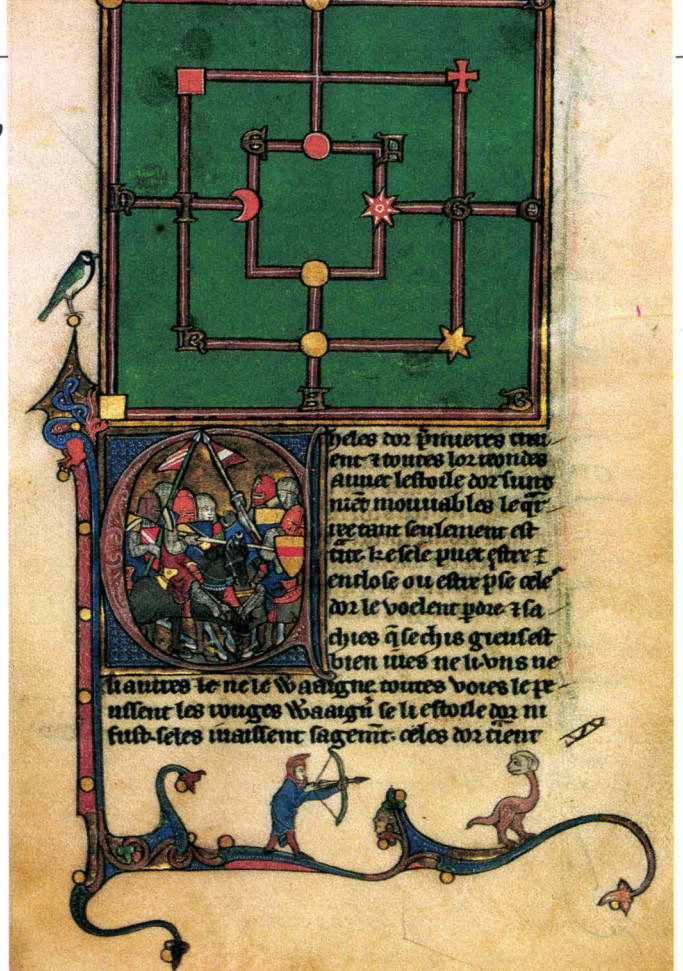 G B
D I G C
K
H B
heles dor
ent ⁊ toutes lor reondes
auuec lestoile dor sunt
mouuables le
tant seulement est
ke sele puet estre
enclose ou estre pse cele
dor le voelent pdre ⁊ sa
chies q̄ se chis gieus est
bien iues ne li vns ne
li autres ke ne le waaigne. toutes voies le
ussent les rouges waaign̄ se li estoile dor ni
fust. seles iuaissent sagem̄t. celes dor